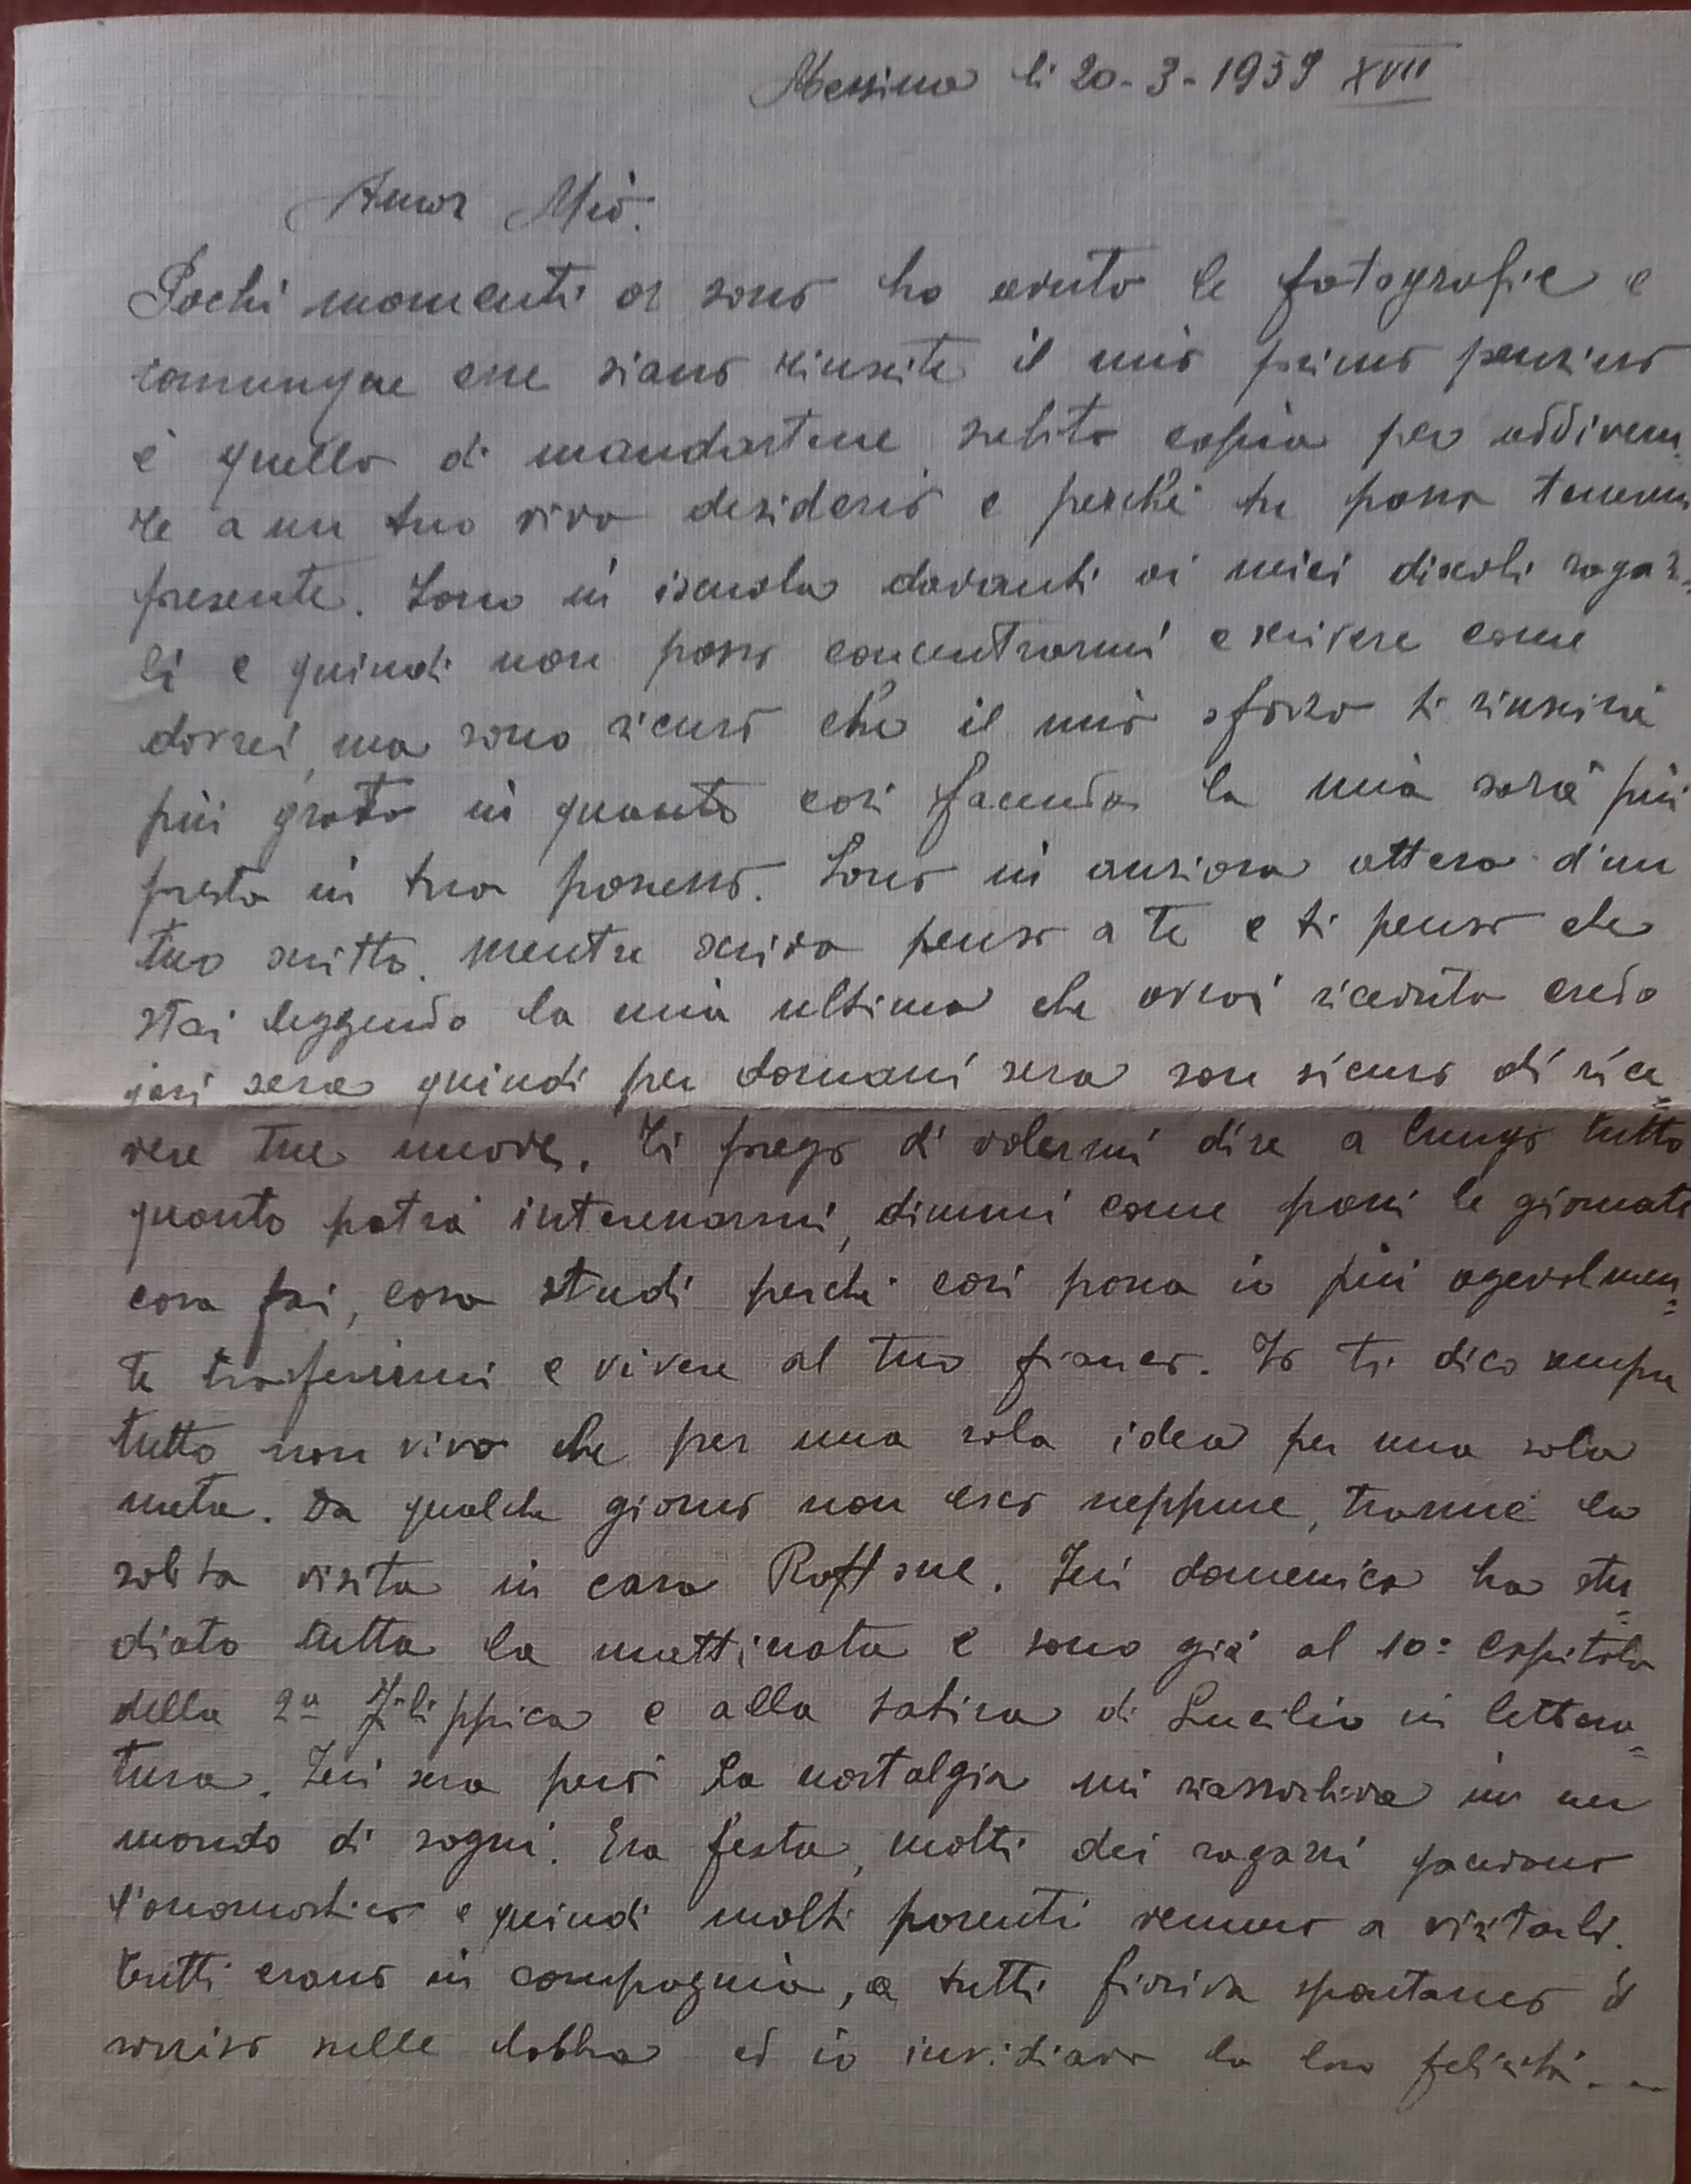 Messina li 20-3-1939 XVII
Amor Mio.
Pochi momenti or sono ho avuto le fotografie e
comunque sne siano riuscite il mio primo pensiero
è quello di mandartene subito copia per addiveni=
re a un tuo vivo desiderio e perché tu possa tenermi
presente. Sono in iscuola davanti ai miei discoli ragaz=
zi e quindi non posso concentrarmi e scrivere come
dovrei, ma sono sicuro che il mio sforzo ti riuscirà
più grato in quanto così facendo la mia sarà più
presto in tuo possesso. Sono in ansiosa attesa d'un
tuo scritto. Mentre scrivo penso a te e ti penso che
stai leggendo la mia ultima che avrai ricevuto credo
ieri sera quindi per domani sera son sicuro di rice=
vere tue nuove. Ti prego di volermi dire a lungo tutto
quanto potrà interessarmi, dimmi come passi le giornate
cosa fai, cosa studi perché così possa io più agevolmen=
te trasferirmi e vivere al tuo fianco. Io ti dico sempre
tutto non vivo che per una sola idea per una sola
meta. Da qualche giorno non esco neppure, tranne la
solita visita in casa Ieri domenica ho stu=
diato tutta la mattinata e sono già al 10° capitolo
della 2ª Filippica e alla satira di Lucilio in lettera=
tura. Ieri sera però la nostalgia mi riassorbiva in un
mondo di sogni. Era festa, molti dei ragazzi facevano
l'onomastico e quindi molti parenti vennero a visitarli.
Tutti erano in compagnia, a tutti fioriva spontaneo il
sorriso sulle labbra ed io invidiavo la loro felicità...